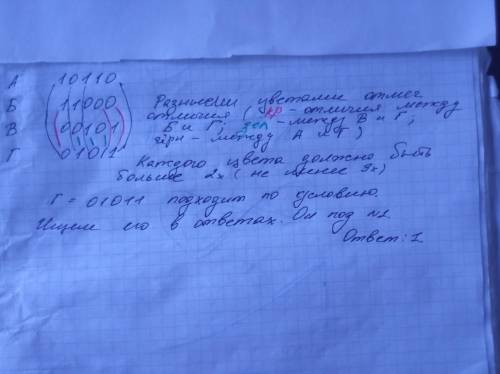 А 10110
Б 11000
В 00101
Г 01011
Разными цветами отмеч
отличия (кр - отличия между
Б и Г; зел - между В и Г;
чёрн - между А и Г)
Каждого цвета должно быть
больше 2х (не менее 3х)
Г = 01011 подходит по условию.
Ищем его в ответах. Он под №1
Ответ: 1